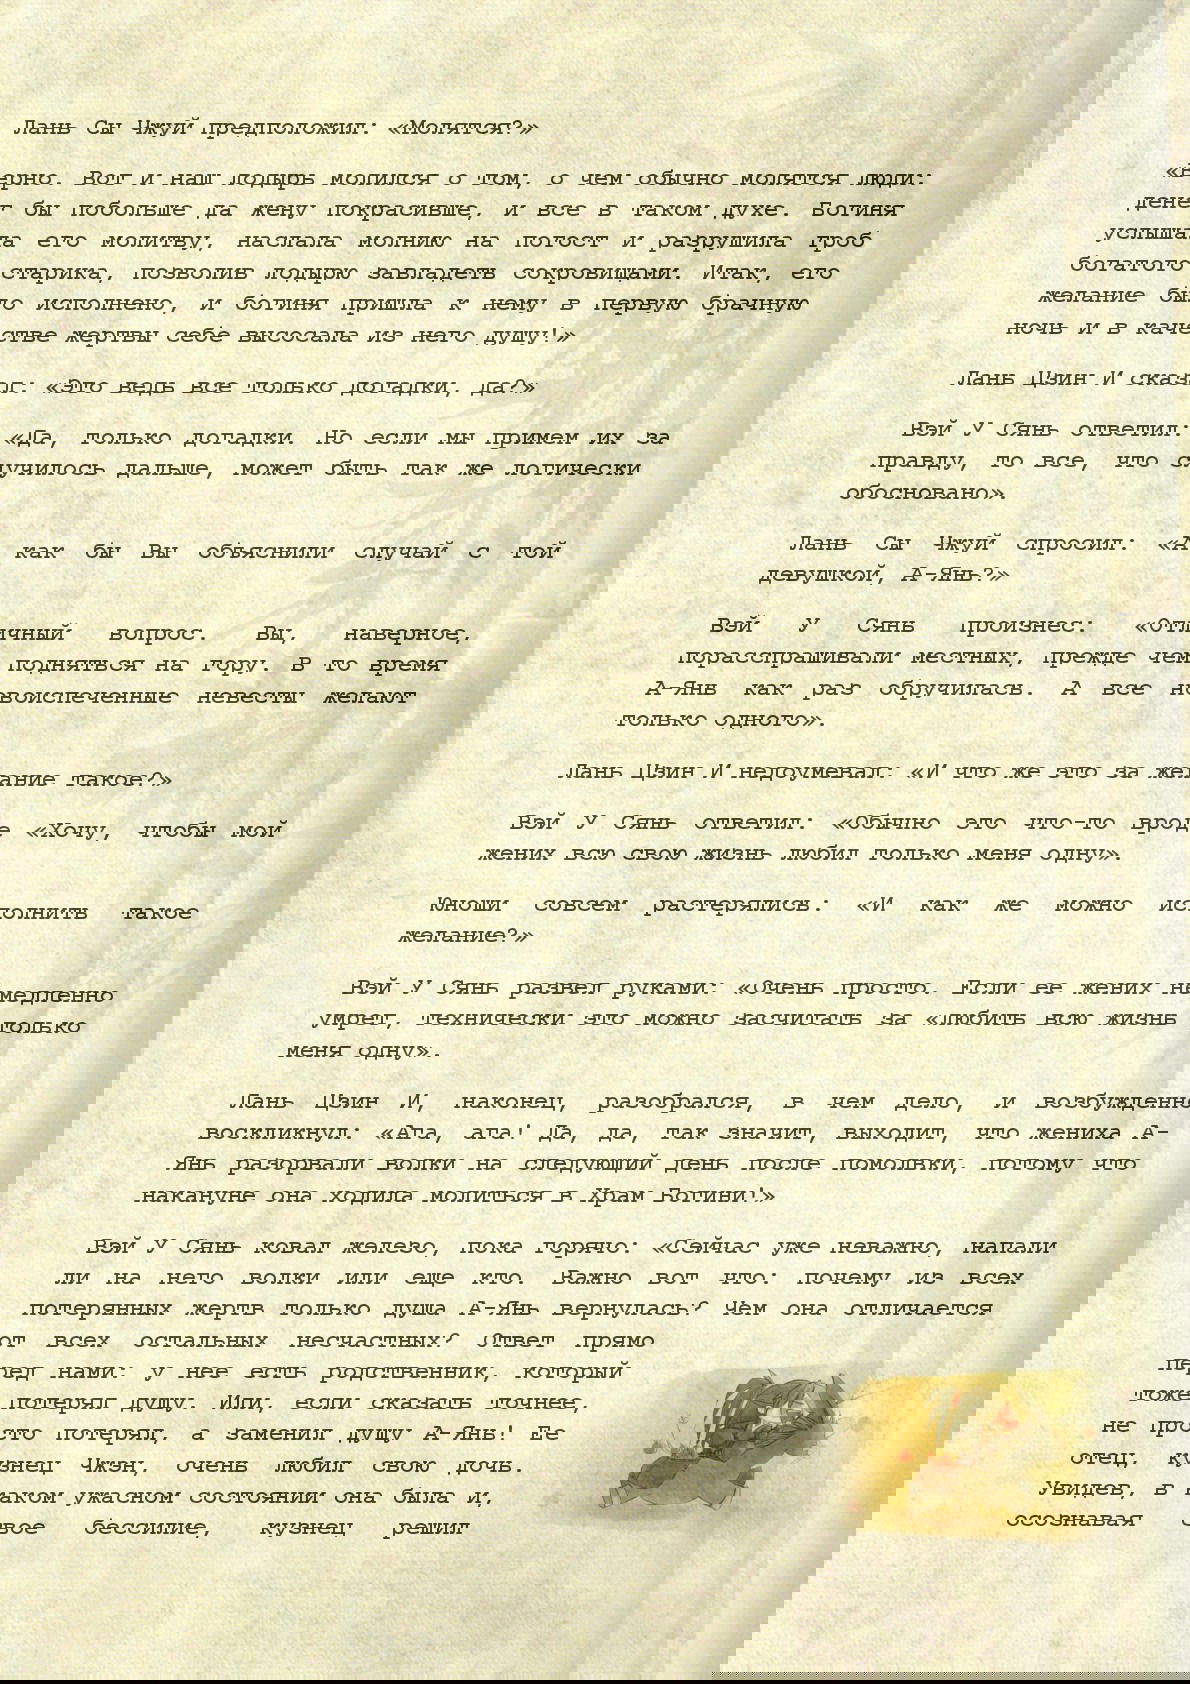 Лань Сы Чжуй предположил: «Молятся?»
«Верно. Вот и наш лодырь молился о том, о чем обычно молятся люди:
денег бы побольше да жену покрасивше, и все в таком духе. Богиня
услышала его молитву, наслала молнию на погост и разрушила гроб
богатого старика, позволив лодырю завладеть сокровищами. Итак, его
желание было исполнено, и богиня пришла к нему в первую брачную
ночь и в качестве жертвы себе высосала из него душу!»
Лань Цзин И сказал: «Это ведь все только догадки, да?»
Вэй У Сянь ответил: «Да, только догадки. Но если мы примем их за
правду, то все, что случилось дальше, может быть так же логически
обосновано».
Лань Сы Чжуй спросил: «А как бы Вы объяснили случай с той
девушкой, А-Янь?»
Вэй У Сянь произнес: «Отличный вопрос. Вы, наверное,
порасспрашивали местных, прежде чем подняться на гору. В то время
А-Янь как раз обручилась. А все новоиспеченные невесты желают
только одного».
Лань Цзин И недоумевал: «И что же это за желание такое?»
Вэй У Сянь ответил: «Обычно это что-то вроде «Хочу, чтобы мой
жених всю свою жизнь любил только меня одну».
Юноши совсем растерялись: «И как же можно исполнить такое
желание?»
Вэй У Сянь развел руками: «Очень просто. Если ее жених немедленно
умрет, технически это можно засчитать за «любить всю жизнь только
меня одну».
Лань Цзин И, наконец, разобрался, в чем дело, и возбужденно
воскликнул: «Ага, ага! Да, да, так значит, выходит, что жениха А-
Янь разорвали волки на следующий день после помолвки, потому что
накануне она ходила молиться в Храм Богини!»
Вэй У Сянь ковал железо, пока горячо: «Сейчас уже неважно, напали
ли на него волки или еще кто. Важно вот что: почему из всех
потерянных жертв только душа А-Янь вернулась? Чем она отличается
от всех остальных несчастных? Ответ прямо
перед нами: у нее есть родственник, который
тоже потерял душу. Или, если сказать точнее,
не просто потерял, а заменил душу А-Янь! Ее
отец, кузнец Чжэн, очень любил свою дочь.
Увидев, в каком ужасном состоянии она была и,
осознавая свое бессилие, кузнец решил